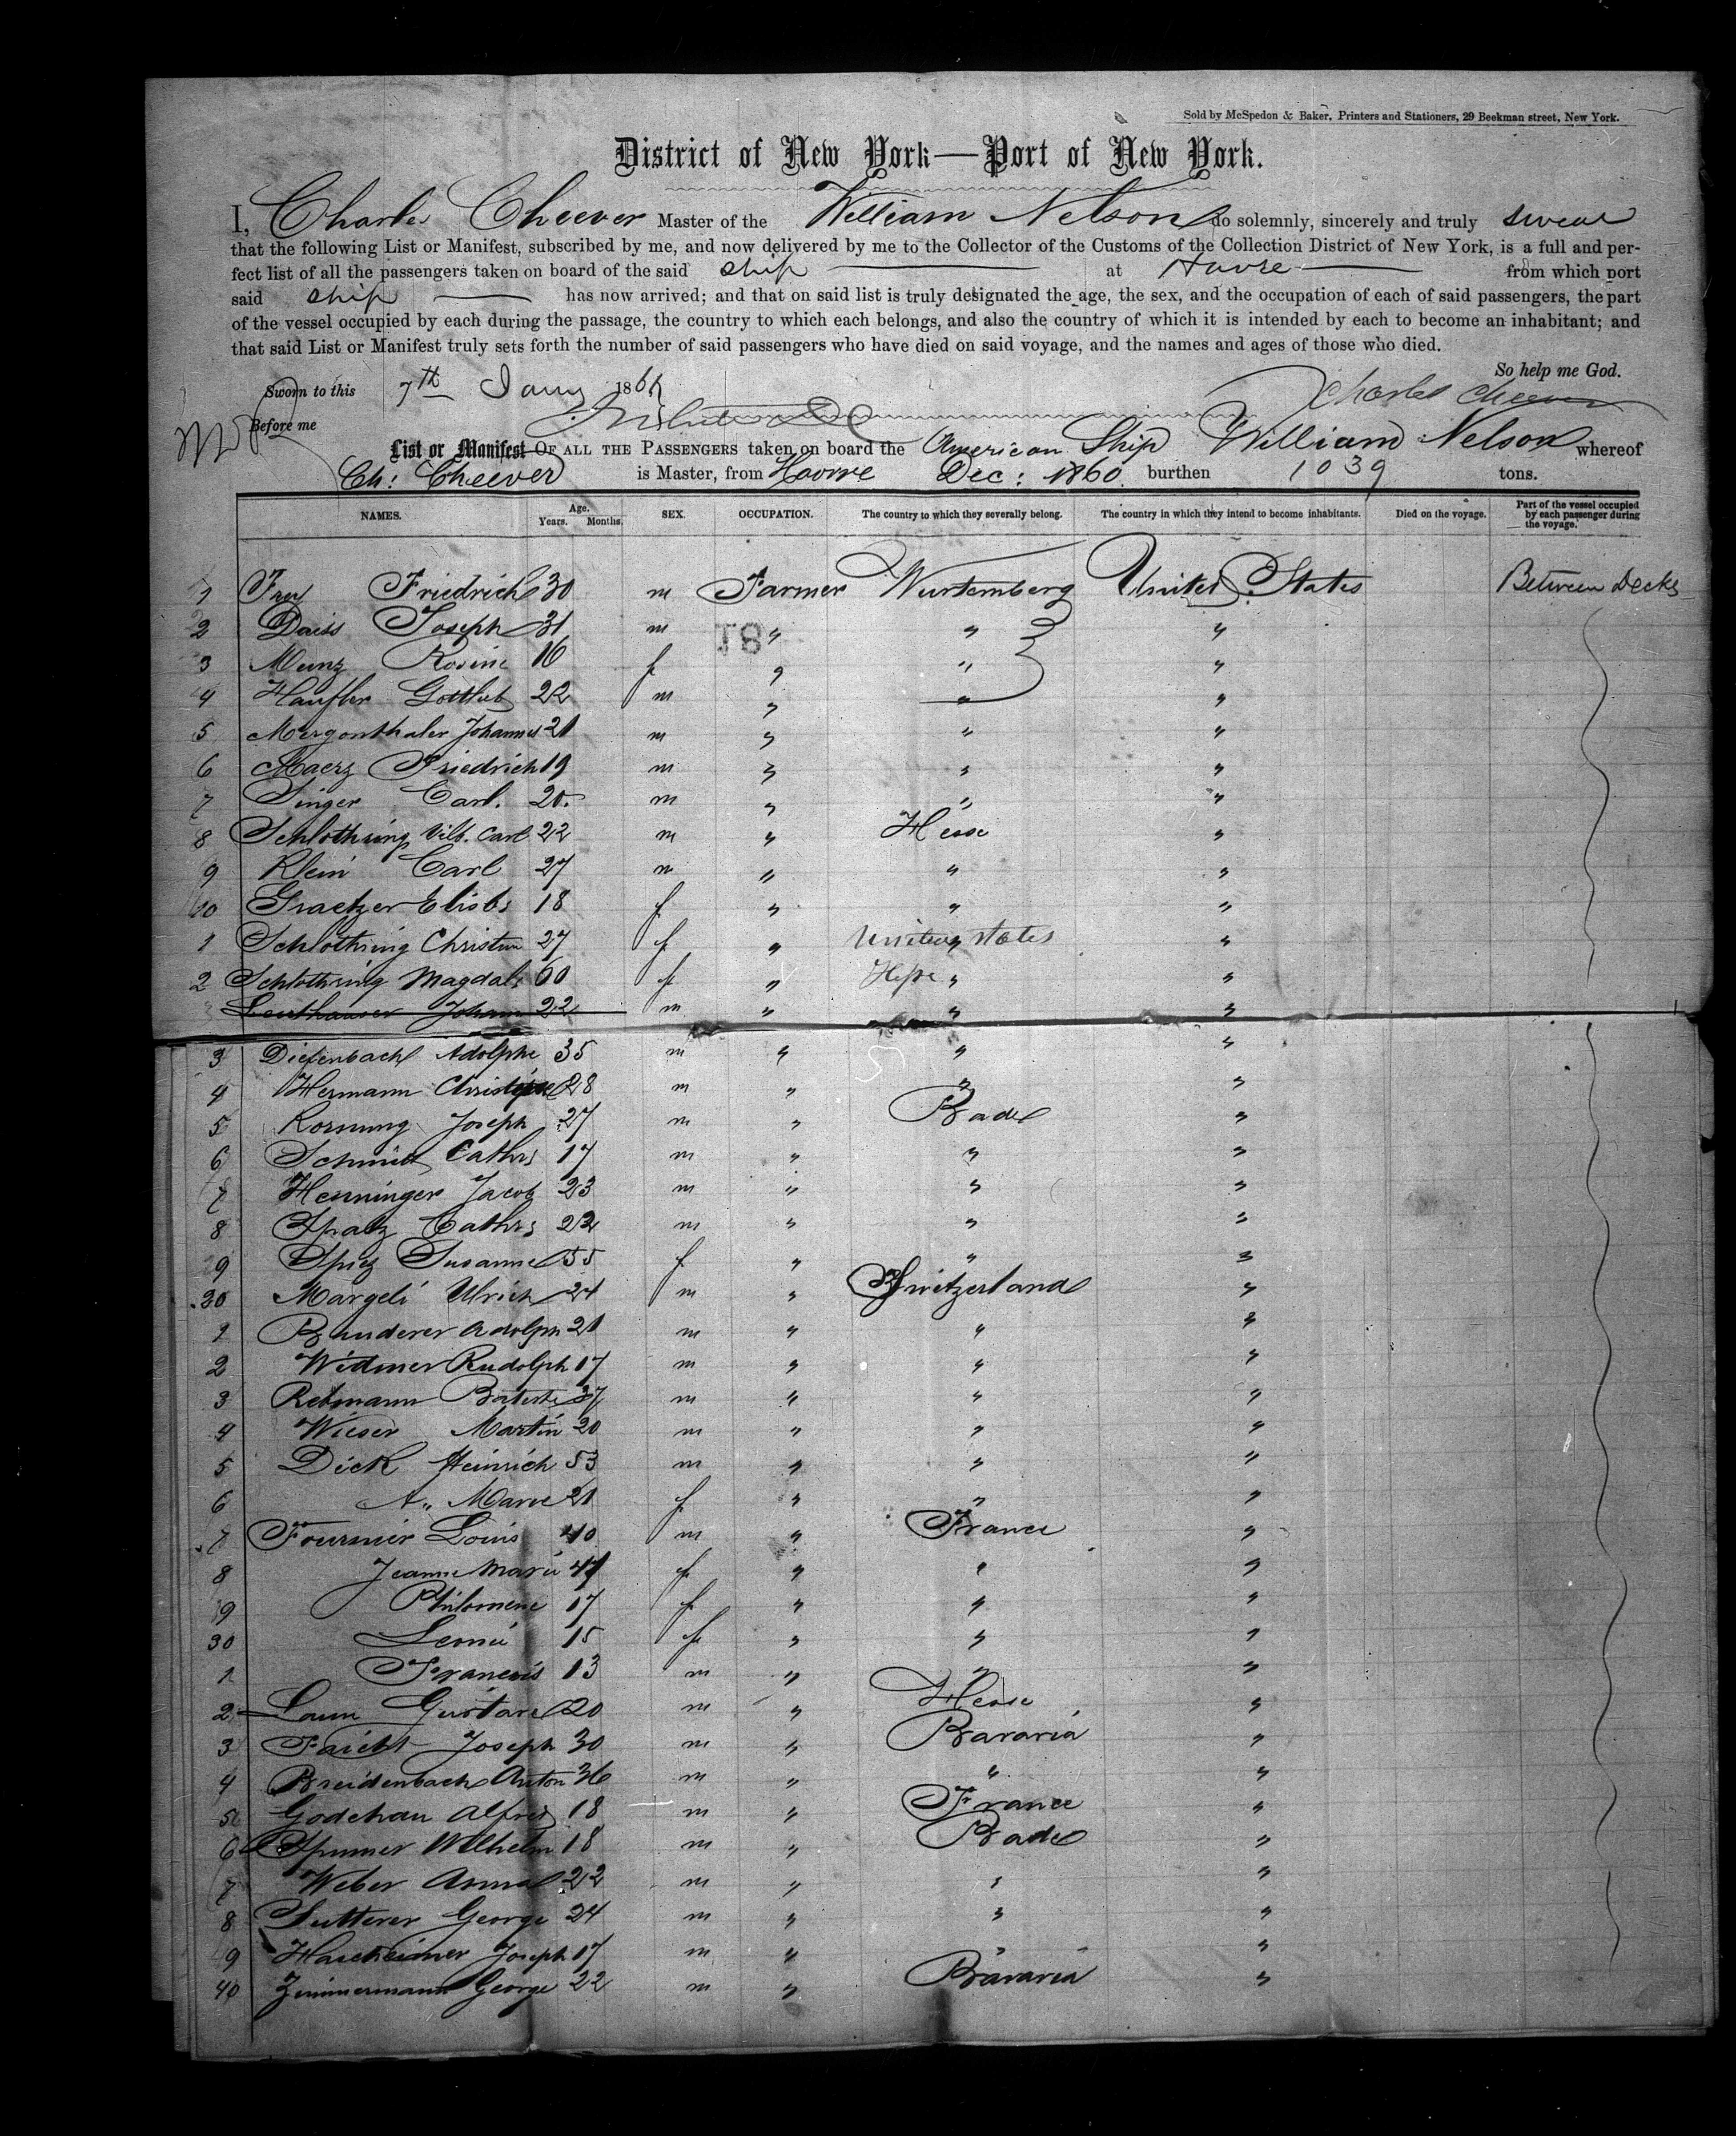 Sold by McSpedon & Baker, Printers and Stationers, 29 Beekman street, New York.
District of New York—Port of New York.
I, Charles Cheever Master of the William Nelson do solemnly, sincerely and truly swear
that the following List or Manifest, subscribed by me, and now delivered by me to the Collector of the Customs of the Collection District of New York, is a full and per-
fect list of all the passengers taken on board of the said ship at Havre from which port
said ship has now arrived; and that on said list is truly designated the age, the sex, and the occupation of each of said passengers, the part
of the vessel occupied by each during the passage, the country to which each belongs, and also the country of which it is intended by each to become an inhabitant; and
that said List or Manifest truly sets forth the number of said passengers who have died on said voyage, and the names and ages of those who died.
So help me God.
Sworn to this 7th Jany 1861 Charles Cheever
Before me
List or Manifest OF ALL THE PASSENGERS taken on board the American Ship William Nelson whereof
Ch: Cheever is Master, from Havre Dec: 1860. burthen 1039 tons.
NAMES. Age. Years. Months. SEX. OCCUPATION. The country to which they severally belong. The country in which they intend to become inhabitants. Died on the voyage. Part of the vessel occupied by each passenger during the voyage.
1 Frey Friedrich 30 m Farmer Wurtemberg United States Between Decks
2 Daiss Joseph 31 m " " "
3 Munz Rosine 16 f " " "
4 Haufler Gottlieb 22 m " " "
5 Mergenthaler Johannes 21 m " " "
6 Maerz Friedrich 19 m " " "
7 Singer Carl. 20. m " " "
8 Schlothring Vilh. Carl 22 m " Hesse "
9 Klein Carl 27 m " " "
10 Graetzer Elisb: 18 f " " "
1 Schlothring Christin 27 f " United States "
2 Schlothring Magdal: 60 f " Hesse "
Leuthauser Johann 22 m " " "
3 Diefenbach Adolphe 35 m " " "
4 Hermann 28 m " " "
5 Kornung Joseph 27 m " Bade "
6 Schmidt Cathr: 17 m " " "
7 Henninger Jacob 23 m " " "
8 Spatz Cathr: 22 m " " "
9 Spiez Susanne 55 f " " "
20 Margeli Ulrich 24 m " Switzerland "
1 Banderer Adolph 21 m " " "
2 Widmer Rudolph 17 m " " "
3 Rebmann Batiste 37 m " " "
4 Wieser Martin 20 m " " "
5 Dick Heinrich 53 m " " "
6 A" Marie 21 f " " "
7 Fournier Louis 40 m " France "
8 Jeanne Marie 41 f " " "
9 Philomene 17 f " " "
30 Leonie 15 f " " "
1 Francois 13 m " " "
2 Laun Gustave 20 m " Hesse "
3 Faicht Joseph 30 m " Bavaria "
4 Breidenbach Anton 36 m " " "
5 Godchau Alfred 18 m " France "
6 Spinner Wilhelm 18 m " Bade "
7 Weber Anna 22 m " " "
8 Sutterer George 24 m " " "
9 Joseph 17 m " " "
40 Zimmermann George 22 m " Bavaria "